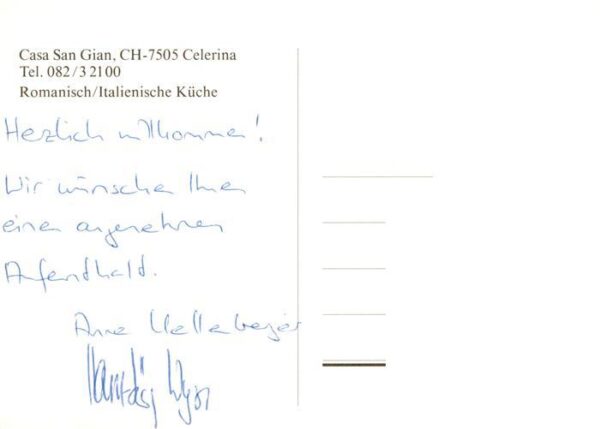 Casa San Gian, CH-7505 Celerina
Tel. 082/3 21 00
Romanisch/Italienische Küche
Herzlich willkommen!
Wir wünschen Ihnen
einen angenehmen
Aufenthald.
Anne